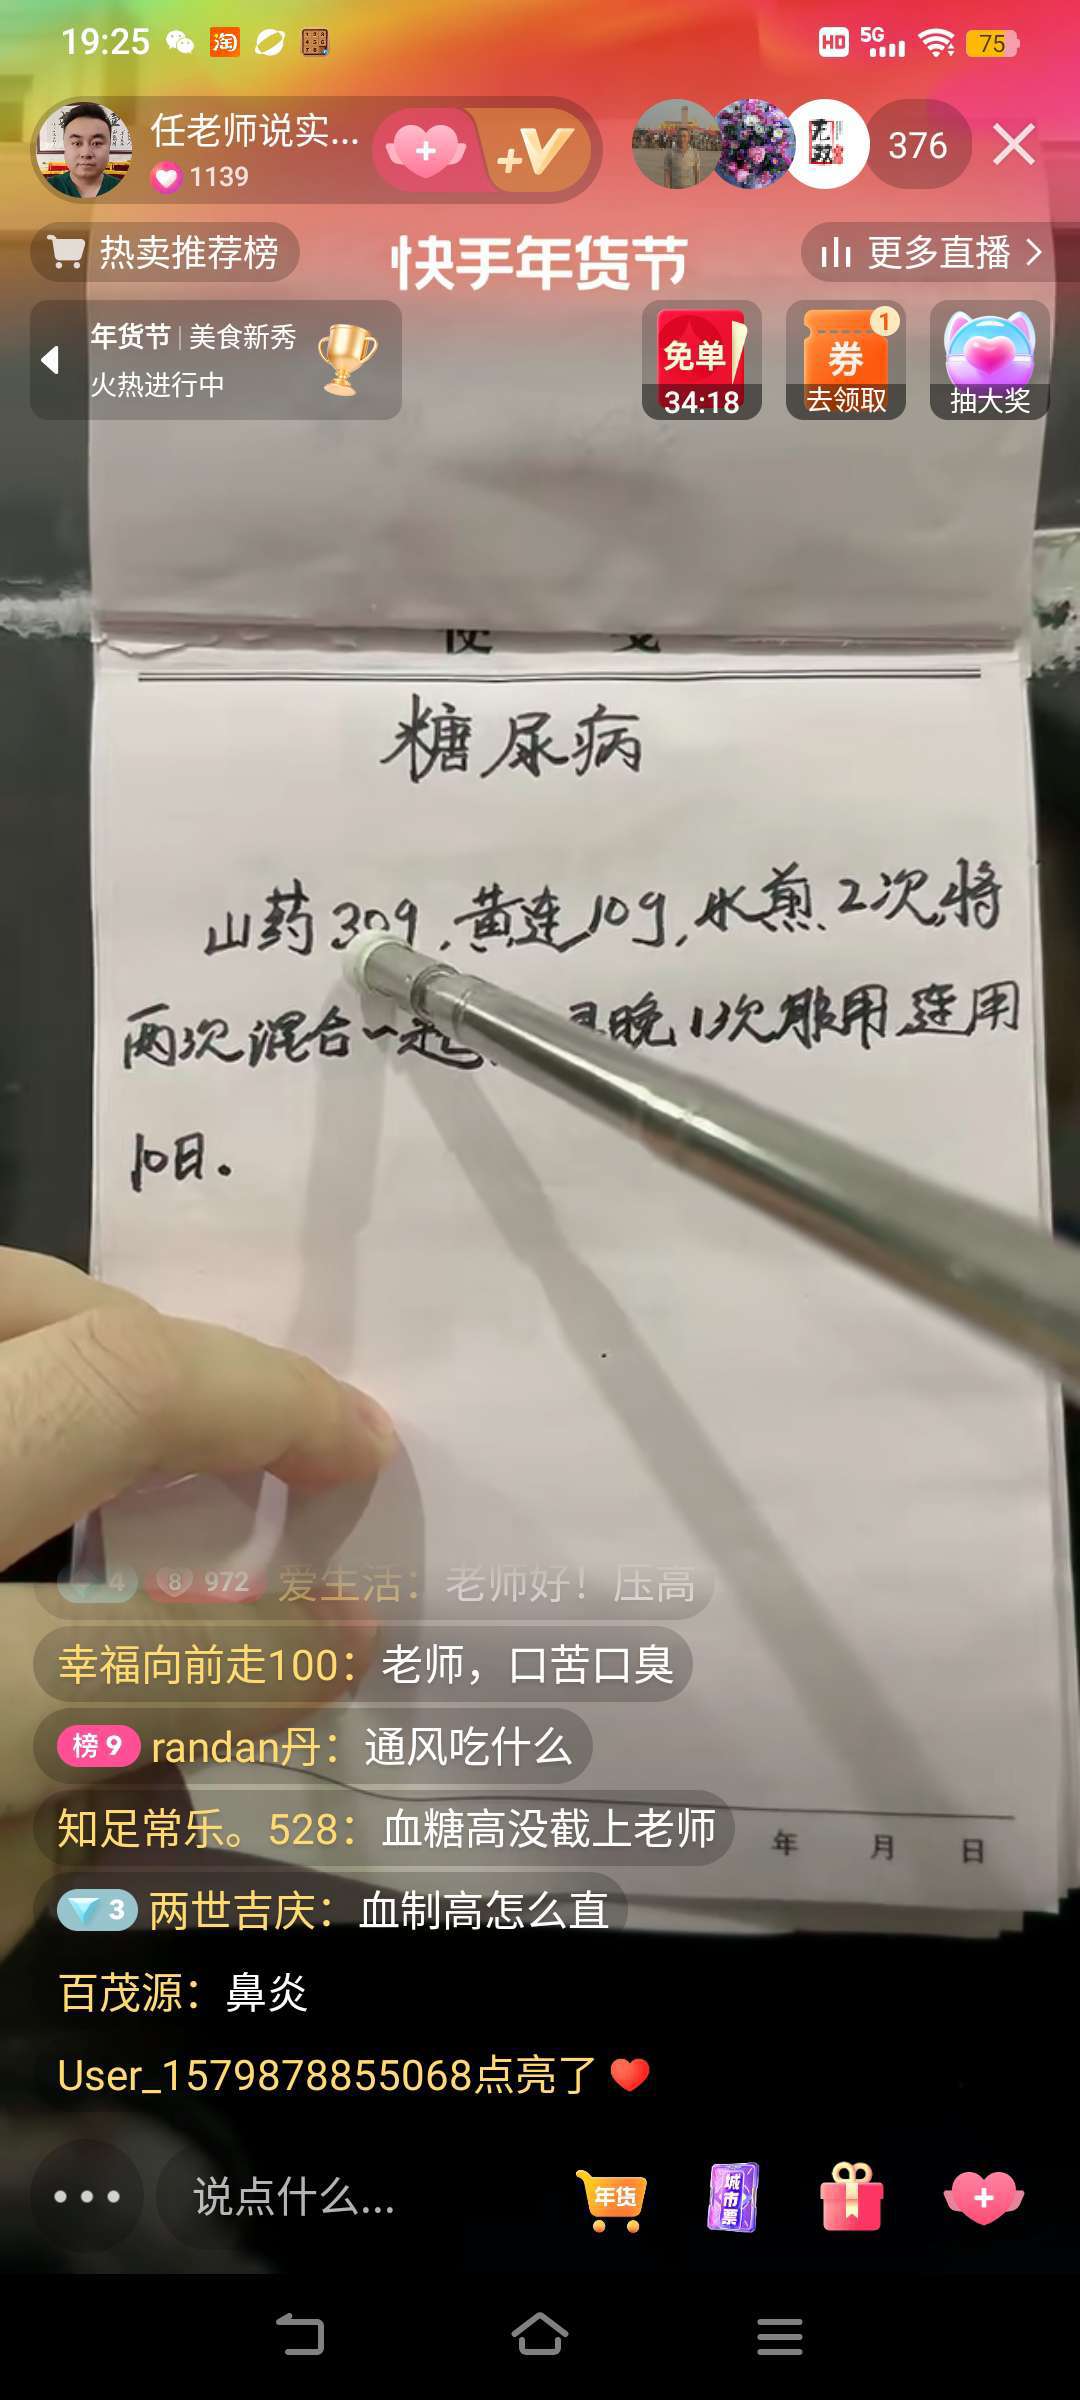 19:25
HD 5G 75
任老师说实...
1139
+V
376
热卖推荐榜
快手年货节
更多直播
年货节|美食新秀
火热进行中
免单
34:18
券
1
去领取
抽大奖
糖尿病
山药30g,黄连10g,水煎2次,将
两次混合一起 早晚1次服用,连用
10日。
4 8 972 爱生活：老师好！压高
幸福向前走100：老师，口苦口臭
榜9 randan丹：通风吃什么
知足常乐。528：血糖高没截上老师
年 月 日
3 两世吉庆：血制高怎么直
百茂源：鼻炎
User_1579878855068点亮了
说点什么...
年货
城市票